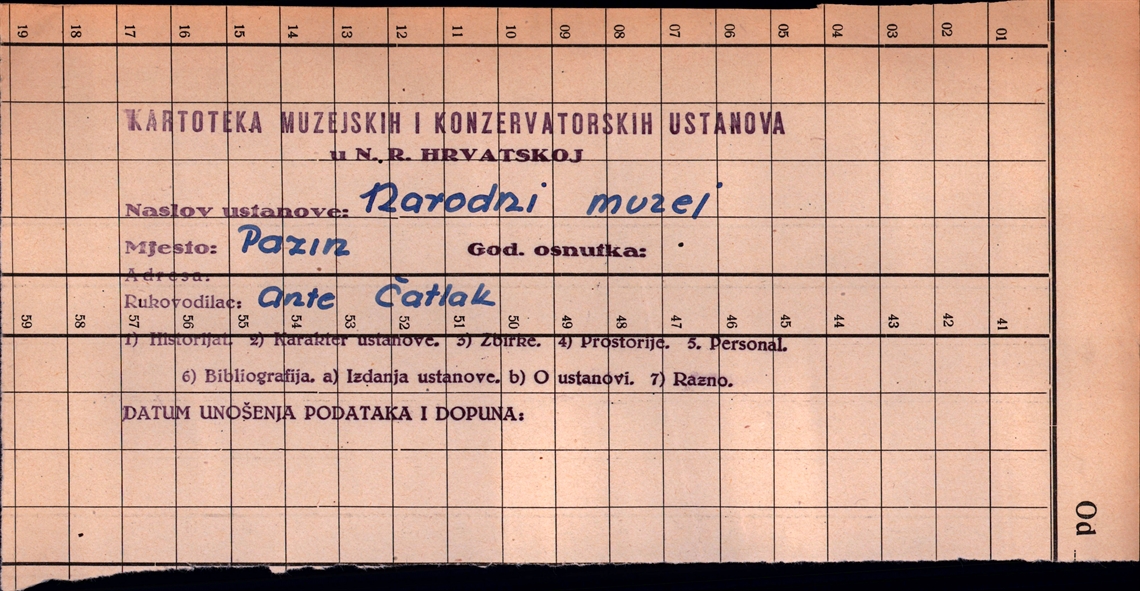 19 18 17 16 15 14 13 12 11 10 09 08 07 06 05 04 03 02 01
KARTOTEKA MUZEJSKIH I KONZERVATORSKIH USTANOVA
u N. R. HRVATSKOJ
Naslov ustanove: Narodni muzej
Mjesto: Pazin God. osnutka:
Adresa:
Rukovodilac: Ante Čatlak
59 58 57 56 55 54 53 52 51 50 49 48 47 46 45 44 43 42 41
1) Historijat. 2) Karakter ustanove. 3) Zbirke. 4) Prostorije. 5. Personal.
6) Bibliografija. a) Izdanja ustanove. b) O ustanovi. 7) Razno.
DATUM UNOŠENJA PODATAKA I DOPUNA:
Od